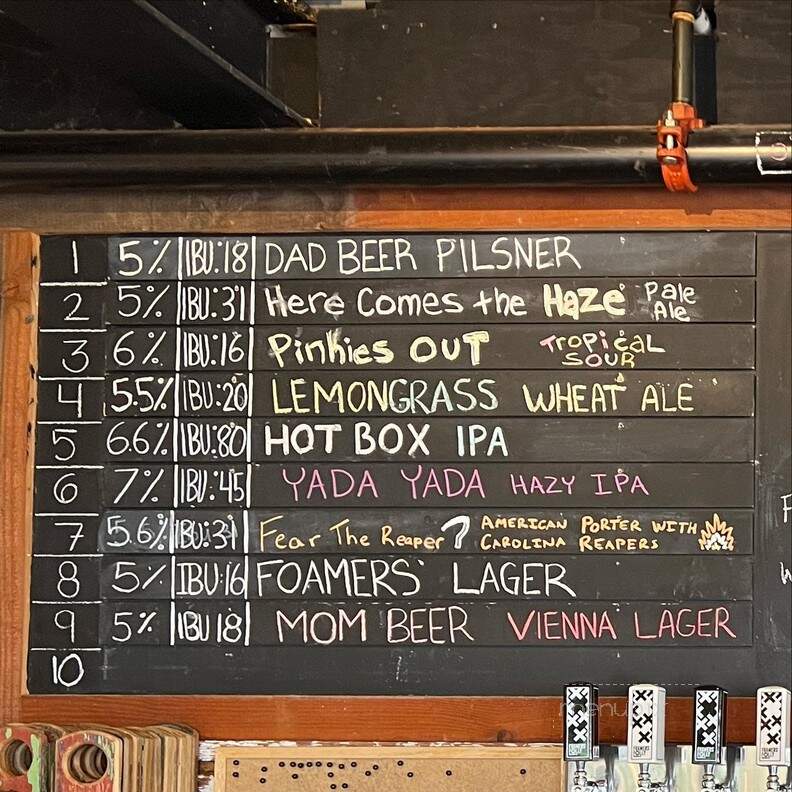 1 5% IBU:18 DAD BEER PILSNER
2 5% IBU:31 Here Comes the Haze Pale Ale
3 6% IBU:16 Pinkies OUT TROPiCaL SOUR
4 5.5% IBU:20 LEMONGRASS WHEAT ALE
5 6.6% IBU:80 HOT BOX IPA
6 7% IBU:45 YADA YADA HAZY IPA
7 5.6% IBU:31 Fear The Reaper? AMERICAN PORTER WITH CAROLINA REAPERS
8 5% IBU:16 FOAMERS' LAGER
9 5% IBU 18 MOM BEER VIENNA LAGER
10